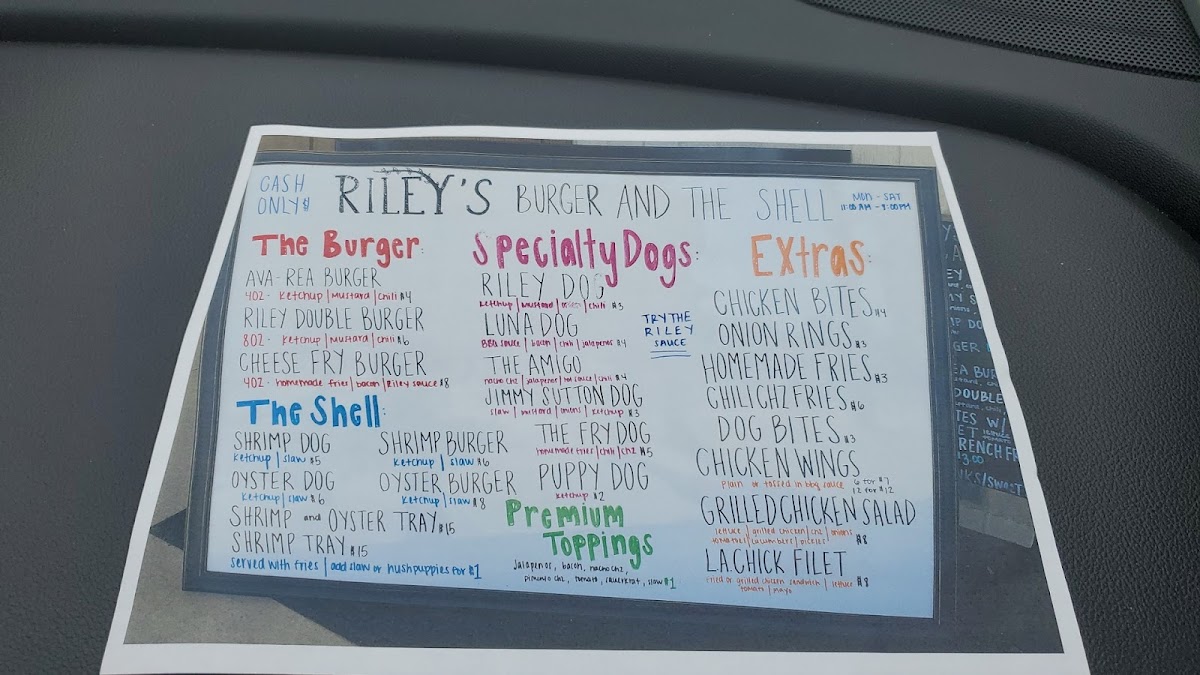 CASH
ONLY $
RILEY'S BURGER AND THE SHELL
MON - SAT
The Burger:
AVA-REA BURGER
4OZ - Ketchup | Mustard | chili $4
RILEY DOUBLE BURGER
8OZ - Ketchup | Mustard | chili $6
CHEESE FRY BURGER
4OZ - homemade fries | bacon | Riley sauce $8
The Shell:
SHRIMP DOG
ketchup | slaw $5
SHRIMP BURGER
ketchup | slaw $6
OYSTER DOG
ketchup | slaw $6
OYSTER BURGER
ketchup | slaw $8
SHRIMP and OYSTER TRAY $15
SHRIMP TRAY $15
served with fries | add slaw or hushpuppies for $1
Specialty Dogs:
RILEY DOG
ketchup | mustard | chili $3
LUNA DOG
BBQ sauce | bacon | chili | jalapenos $4
THE AMIGO
nacho chz | jalapenos | hot sauce | chili $4
JIMMY SUTTON DOG
slaw | mustard | onions | ketchup $3
THE FRY DOG
homemade fries | chili | chz $5
PUPPY DOG
ketchup $2
TRY THE
RILEY
SAUCE
Premium
Toppings
jalapenos, bacon, nacho chz,
pimento chz, tomato, sauerkrat, slaw $1
EXtras:
CHICKEN BITES $4
ONION RINGS $3
HOMEMADE FRIES $3
CHILI CHZ FRIES $6
DOG BITES $3
CHICKEN WINGS
plain or tossed in bbq sauce 6 for $7
12 for $12
GRILLED CHICKEN SALAD
lettuce | grilled chicken | chz | onions
tomatoes | cucumbers | pickles $8
LA.CHICK FILET
fried or grilled chicken sandwich | lettuce $8
tomato | mayo
DOUBLE